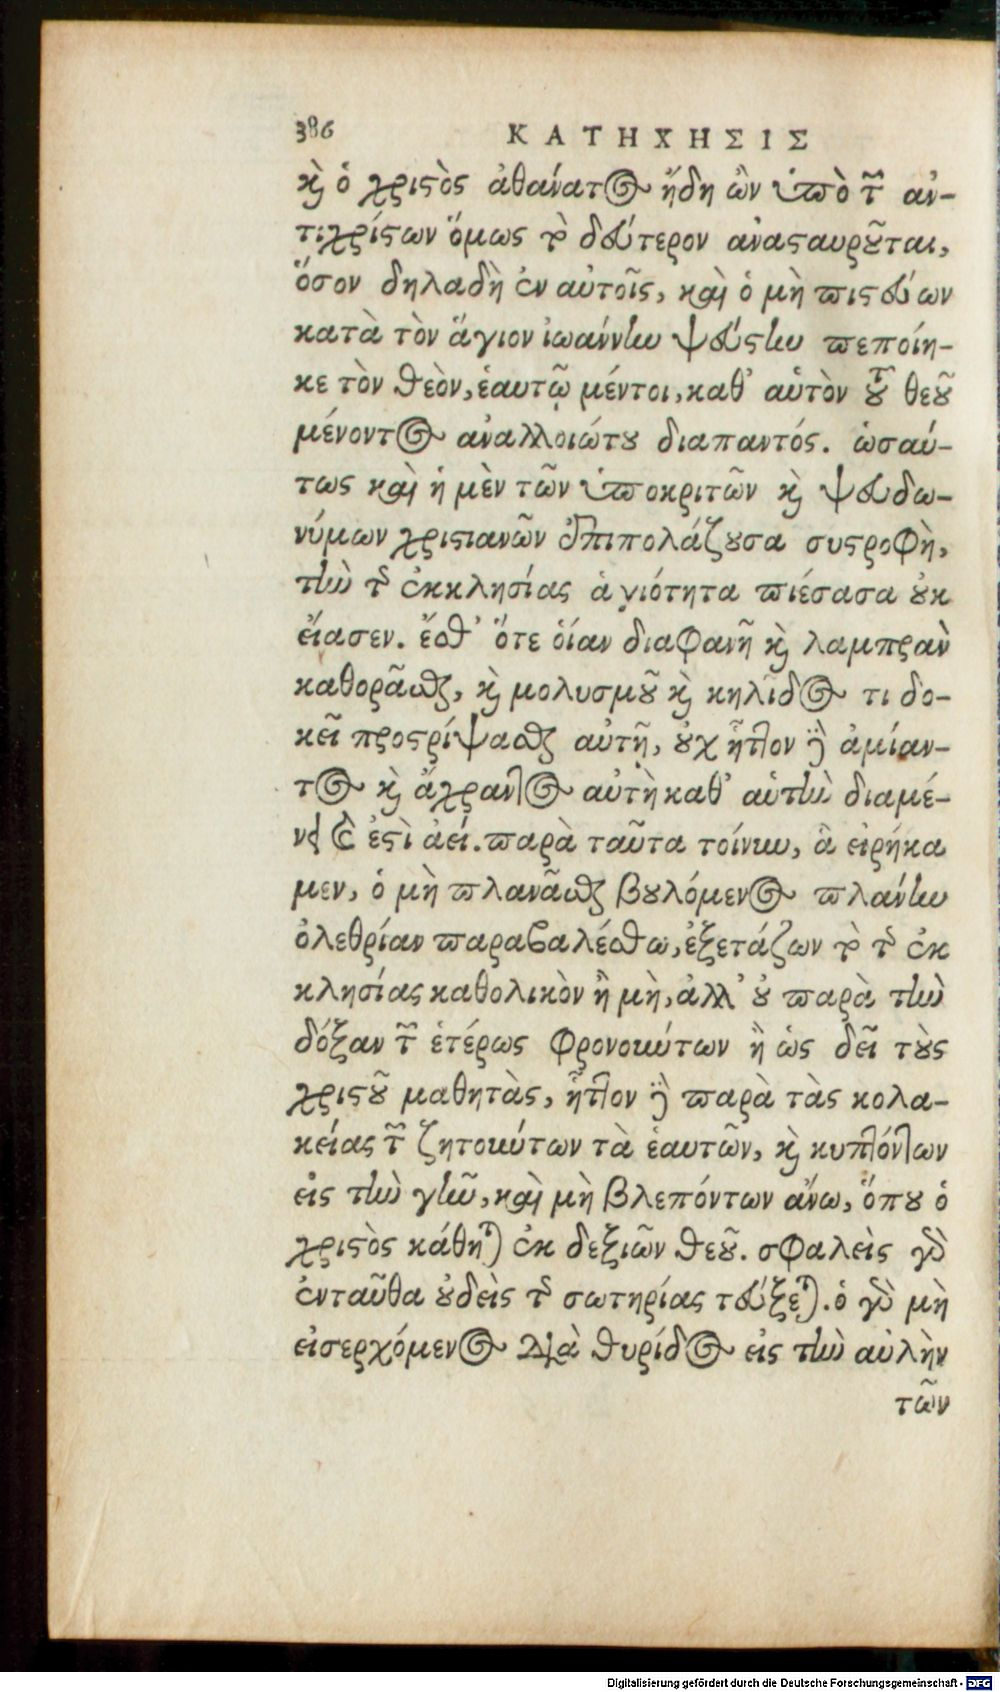 386 ΚΑΤΗΧΗΣΙΣ
καὶ ὁ χριστὸς ἀθάνατος ἤδη ὢν ὑπὸ τῶν ἀν-
τιχρίστων ὅμως τὸ δεύτερον ἀνασταυροῦται,
ὅσον δηλαδὴ ἐν αὐτοῖς, καὶ ὁ μὴ πιστεύων
κατὰ τὸν ἅγιον ἰωάννην ψεύστην πεποίη-
κε τὸν θεὸν, ἑαυτῷ μέντοι, καθ' αὑτὸν τοῦ θεοῦ
μένοντος ἀναλλοιώτου διαπαντός. ὡσαύ-
τως καὶ ἡ μὲν τῶν ὑποκριτῶν καὶ ψευδω-
νύμων χριστιανῶν ἐπιπολάζουσα συστροφὴ,
τὴν τῆς ἐκκλησίας ἁγιότητα πιέσασα οὐκ
εἴασεν. ἔσθ' ὅτε ὁίαν διαφανῆ καὶ λαμπρὰν
καθορᾶσθαι, καὶ μολυσμοῦ καὶ κηλῖδος τι δο-
κεῖ προστρίψασθαι αὐτῇ, οὐχ ἧττον γὰρ ἀμίαν-
τος καὶ ἄχραντος αὐτὴ καθ' αὑτὴν διαμέ-
νει καὶ ἐστὶ ἀεί. παρὰ ταῦτα τοίνυν, ἃ εἰρήκα
μεν, ὁ μὴ πλανᾶσθαι βουλόμενος πλάνην
ὀλεθρίαν παραβαλέσθω, ἐξετάζων τὸ τῆς ἐκ
κλησίας καθολικὸν ἢ μὴ, ἀλλ' οὐ παρὰ τὴν
δόξαν τῶν ἑτέρως φρονούντων ἢ ὡς δεῖ τοὺς
χριστοῦ μαθητὰς, ἧττον γὰρ παρὰ τὰς κολα-
κείας τῶν ζητούντων τὰ ἑαυτῶν, καὶ κυπτόντων
εἰς τὴν γῆν, καὶ μὴ βλεπόντων ἄνω, ὅπου ὁ
χριστὸς κάθηται ἐκ δεξιῶν θεοῦ. σφαλεὶς γὰρ
ἐνταῦθα οὐδεὶς τῆς σωτηρίας τεύξεται. ὁ γὰρ μὴ
εἰσερχόμενος διὰ θυρίδος εἰς τὴν αὐλὴν
τῶν
Digitalisierung gefördert durch die Deutsche Forschungsgemeinschaft - DFG